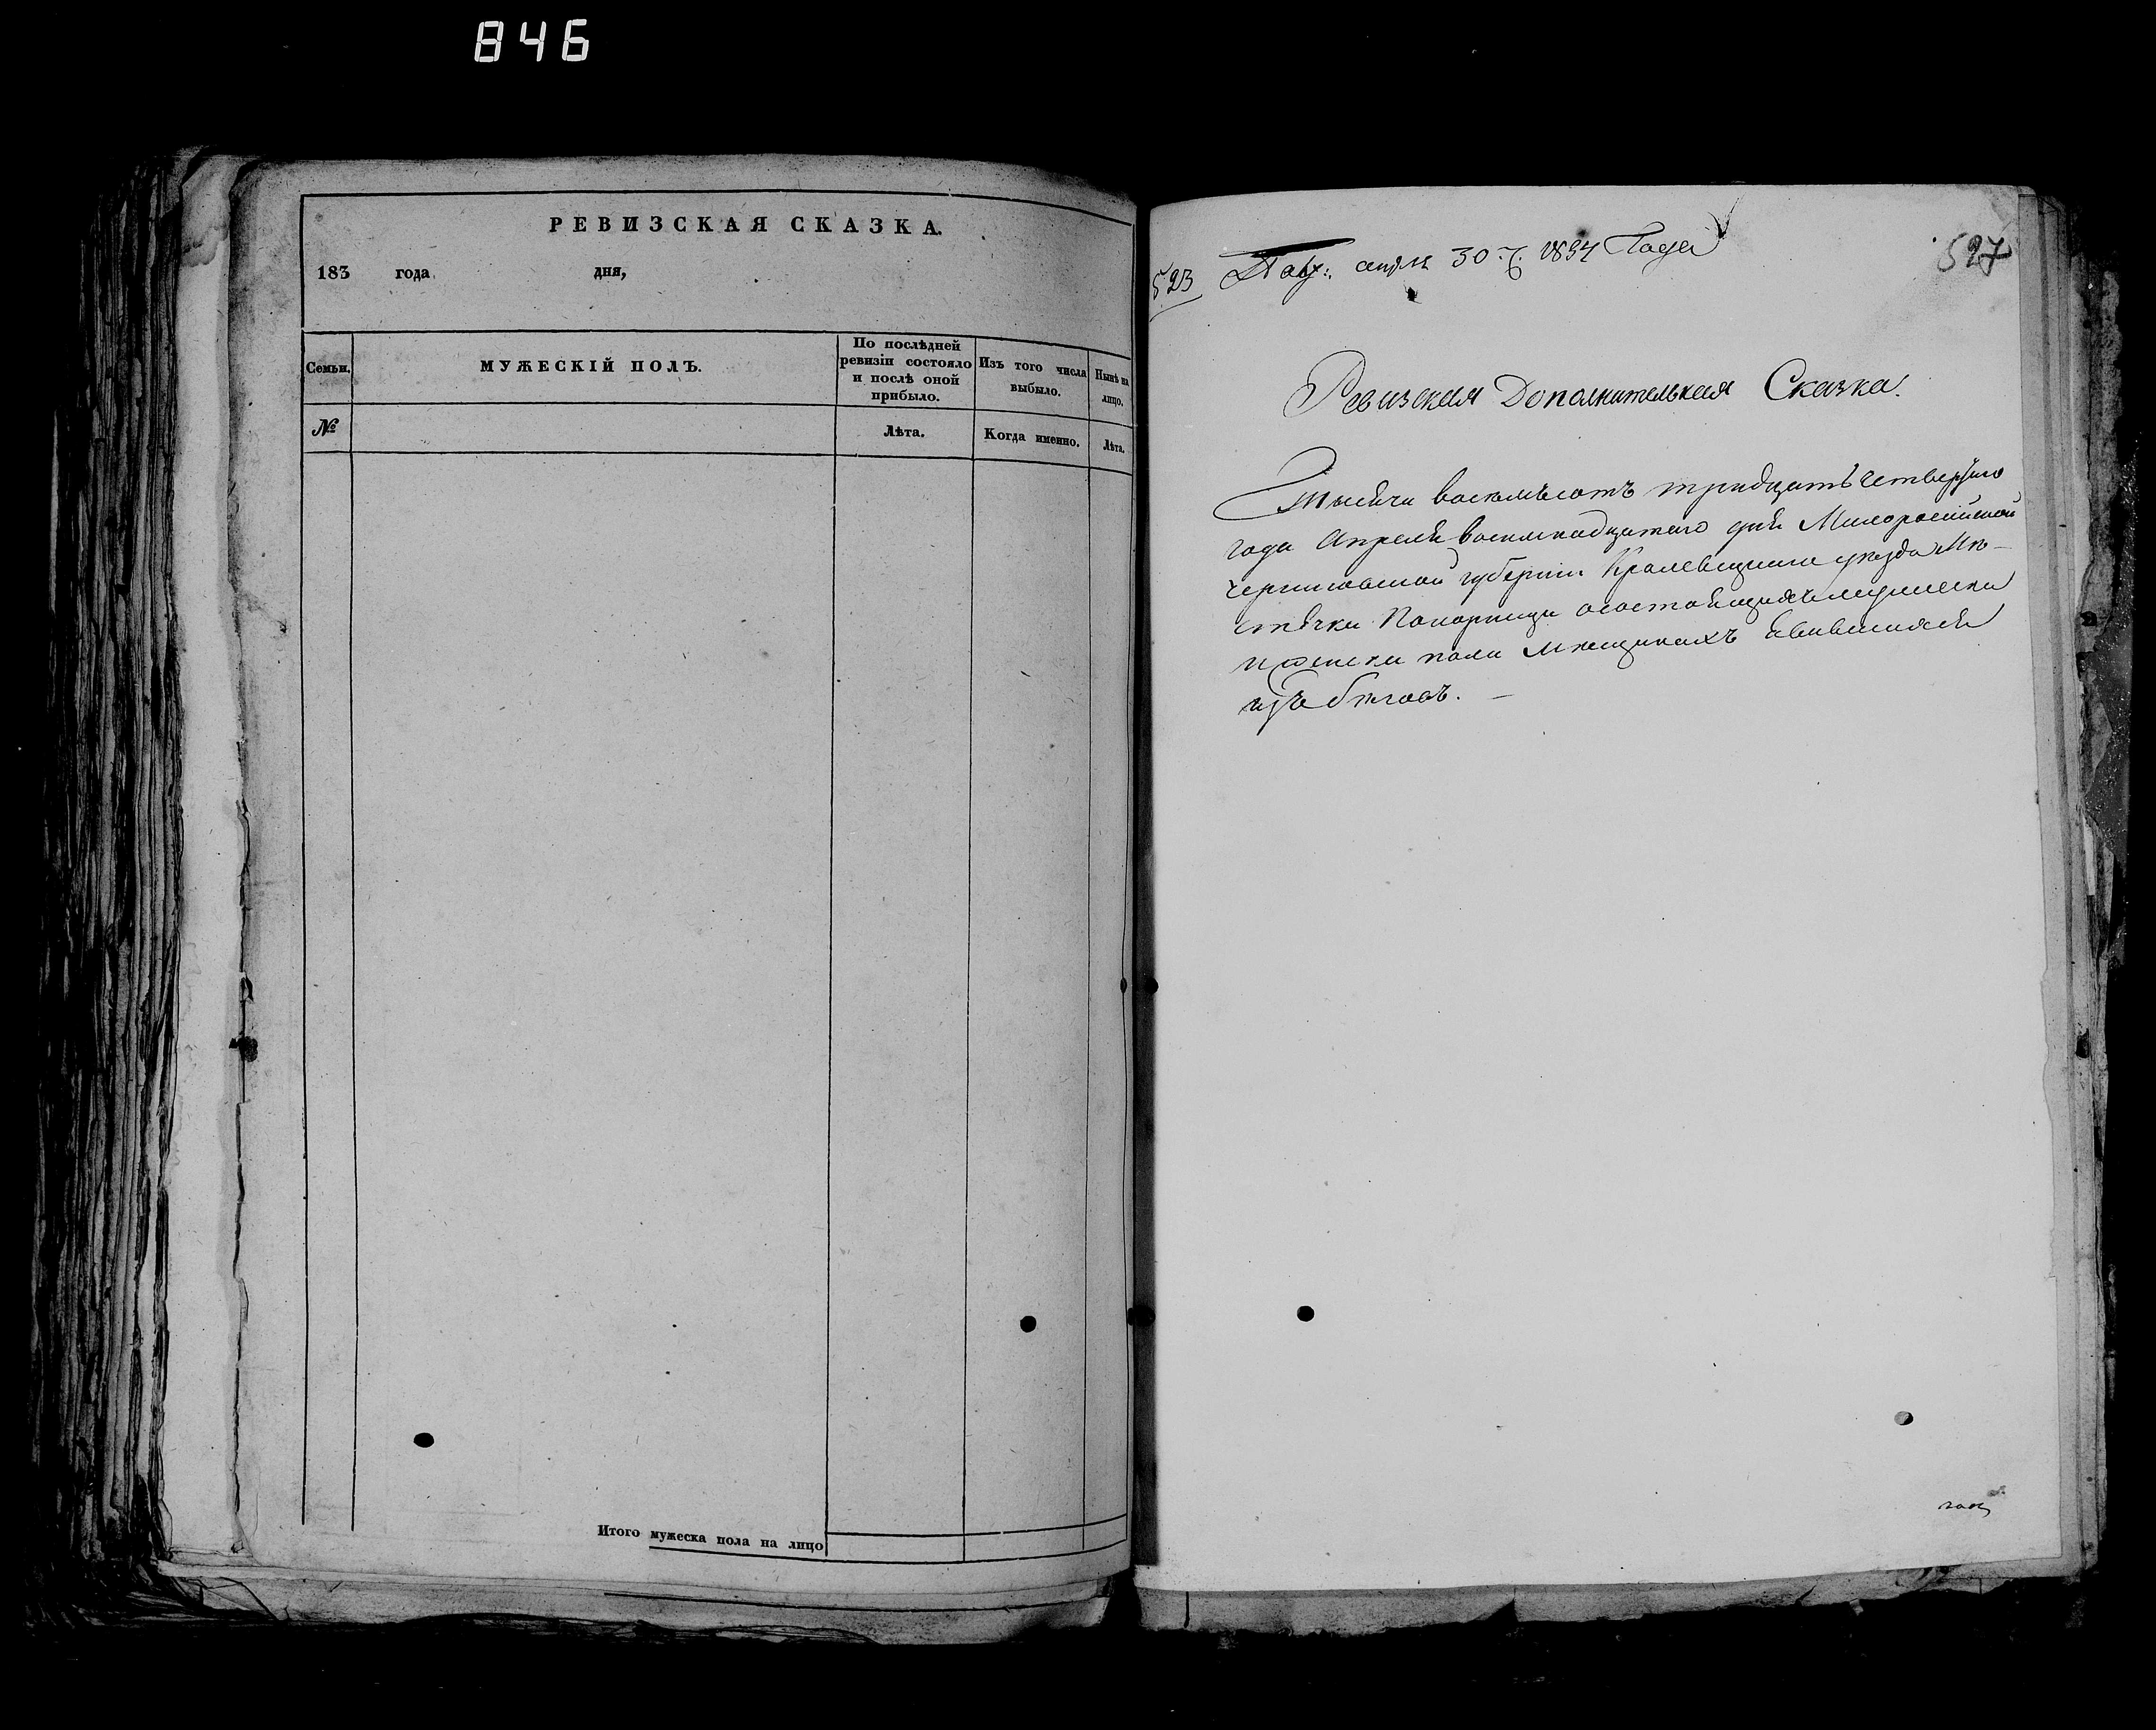 846
РЕВИЗСКАЯ СКАЗКА.
183 года дня,
Семьи.
МУЖЕСКІЙ ПОЛЪ.
По послѣдней
ревизіи состояло
и послѣ оной
прибыло.
Изъ того числа
выбыло.
Нынѣ на
лицо.
№
Лѣта.
Когда именно.
Лѣта.
Итого мужеска пола на лицо
523
апрля 30 1834 Года
527
Ревизская Дополнительная Сказка.
Тысяча восемьсотъ тридцать четвертого
года Апреля восемнадцатого дня Малоросийской
Черниговской губернии Кролевецкого уезда Мѣ-
стечка Понорници осостоящихъ мужеска
и женска пола мѣщинахъ явившихся
изъ бѣговъ. –